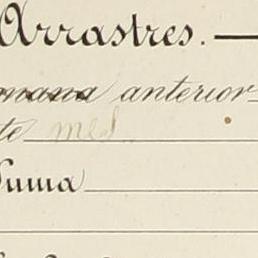 Arrastres.
mana anterior
te mes
Suma